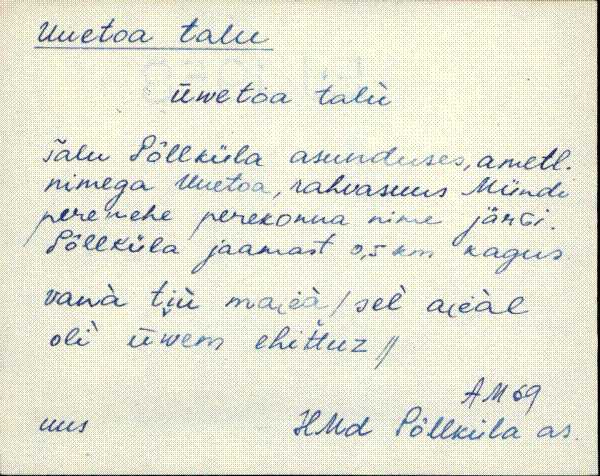 Uuetoa talu
üwetoa talù
Talu Põllküla asunduses, ametl.
nimega Uuetoa, rahvasuus Mündi
perenehe perekonna nime järgi.
Põllküla jaamast 0,5 km kagus
vanà tjù majeà / sel ajeàl
oli üwem ehittuz //
AM 69
uus HMd Põllküla as.